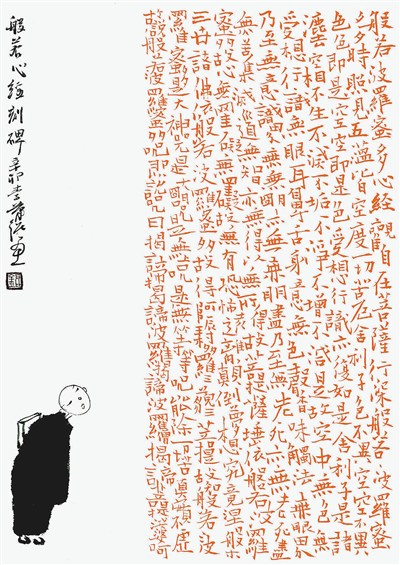 般若波羅蜜多心經觀自在菩薩行深般若波羅蜜
多時照見五蘊皆空度一切苦厄舍利子色不異空空不異
色色即是空空即是色受想行識亦復如是舍利子是諸
法空相不生不滅不垢不淨不增不減是故空中無色無
受想行識無眼耳鼻舌身意無色聲香味觸法無眼界
乃至無意識界無無明亦無無明盡乃至無老死亦無老死盡
無苦集滅道無智亦無得以無所得故菩提薩埵依般若波羅
蜜多故心無罣礙無罣礙故無有恐怖遠離顛倒夢想究竟涅槃
三世諸佛依般若波羅蜜多故得阿耨多羅三藐三菩提故般若波
羅蜜多是大神咒是大明咒是無上咒是無等等咒能除一切苦真實不虛
故說般若波羅蜜多咒即說咒曰揭諦揭諦波羅揭諦波羅僧揭諦菩提薩婆訶
般若心經刻碑 辛卯 李蕭錕畫